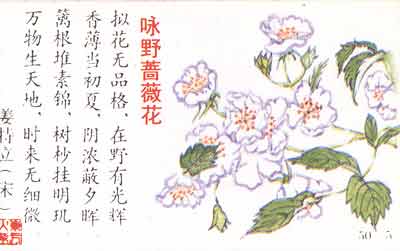 咏野蔷薇花
拟花无品格,在野有光辉
香薄当初夏,阴浓蔽夕晖
篱根堆素锦,树杪挂明玑
万物生天地,时来无细微
姜特立(宋)
50 5